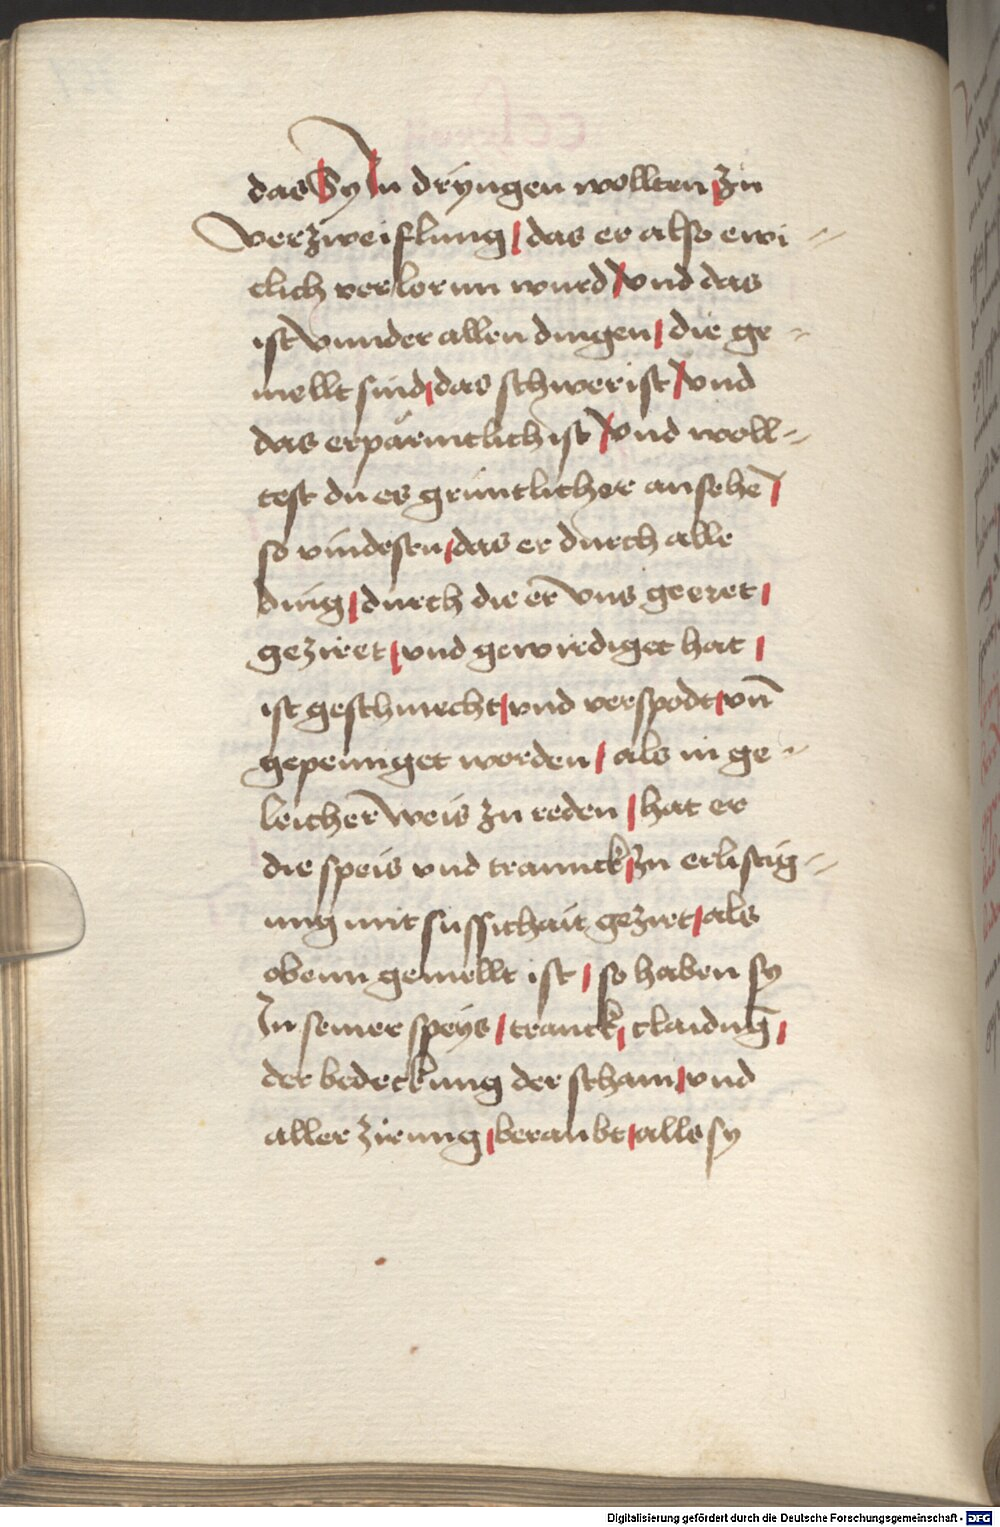 das Sy In dryngen wollten zu
verzweiflung / das er also ewi=
clich verlornn wurd / vnd das
ist vnnder allen dingen / die ge=
mellt sind / das schwer ist / vnd
das erpärmtlich ist / vnd woll=
test du es grüntlicher ansehe /
so vindestu / das er durch alle
ding / durch die er vns geeret /
geziret / vnd gewirdiget hat /
ist geschmecht / vnd verspodt / vn̄
gepeiniget worden / als in ge=
leicher weis zu reden / hat er
die speis vnd trannck / zu erlustig=
ung mit süssichait gezirt / als
obenn gemellt ist / so haben sy
In seiner speys / tranck / claidung /
der bedeckung der scham / vnd
aller zirung / beraubt / alls sy
Digitalisierung gefördert durch die Deutsche Forschungsgemeinschaft - DFG